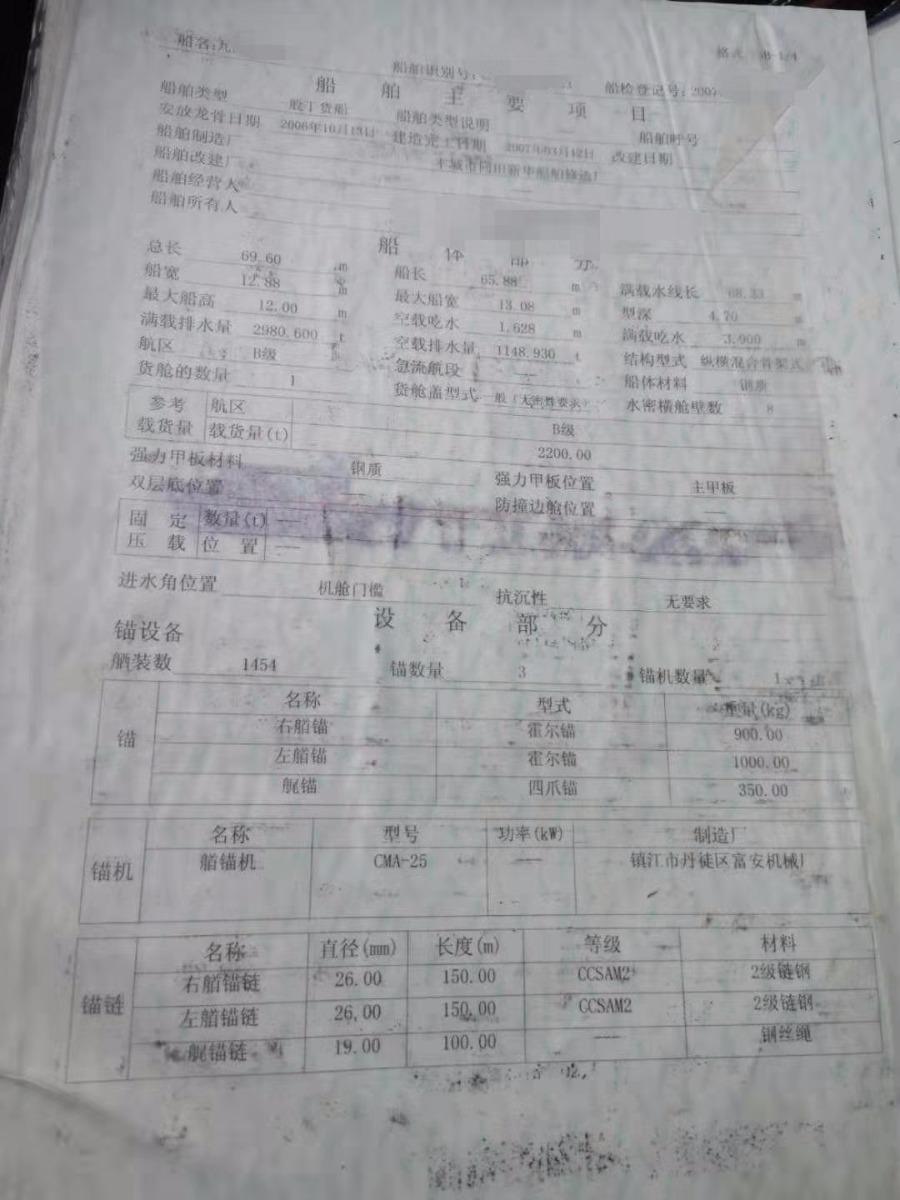 船名:九
格式
船舶识别号:
船检登记号:2007
船舶主要项目
船舶类型 一般干货船 船舶类型说明 船舶呼号
安放龙骨日期 2006年10月13日 建造完工日期 2007年03月12日 改建日期
船舶制造厂
船舶改建厂
船舶经营人
船舶所有人
船体部分
总长 69.60 m 船长 65.88 m 满载水线长 68.33 m
船宽 12.88 m 最大船宽 13.08 m 型深 4.70 m
最大船高 12.00 m 空载吃水 1.628 m 满载吃水 3.900 m
满载排水量 2980.600 t 空载排水量 1148.930 t 结构型式 纵横混合骨架式
航区 B级 急流航段 —— 船体材料 钢质
货舱的数量 1 货舱盖型式 水密横舱壁数 8
参考载货量 航区 B级
载货量(t) 2200.00
强力甲板材料 钢质 强力甲板位置 主甲板
双层底位置 防撞边舱位置 ——
固定压载 数量(t) ——
位置 ——
进水角位置 机舱门槛 抗沉性 无要求
设备部分
锚设备
舾装数 1454 锚数量 3 锚机数量 1
锚 名称 型式 重量(kg)
右艏锚 霍尔锚 900.00
左艏锚 霍尔锚 1000.00
艉锚 四爪锚 350.00
锚机 名称 型号 功率(kW) 制造厂
艏锚机 CMA-25 —— 镇江市丹徒区富安机械厂
锚链 名称 直径(mm) 长度(m) 等级 材料
右艏锚链 26.00 150.00 CCSAM2 2级链钢
左艏锚链 26.00 150.00 CCSAM2 2级链钢
艉锚链 19.00 100.00 —— 钢丝绳